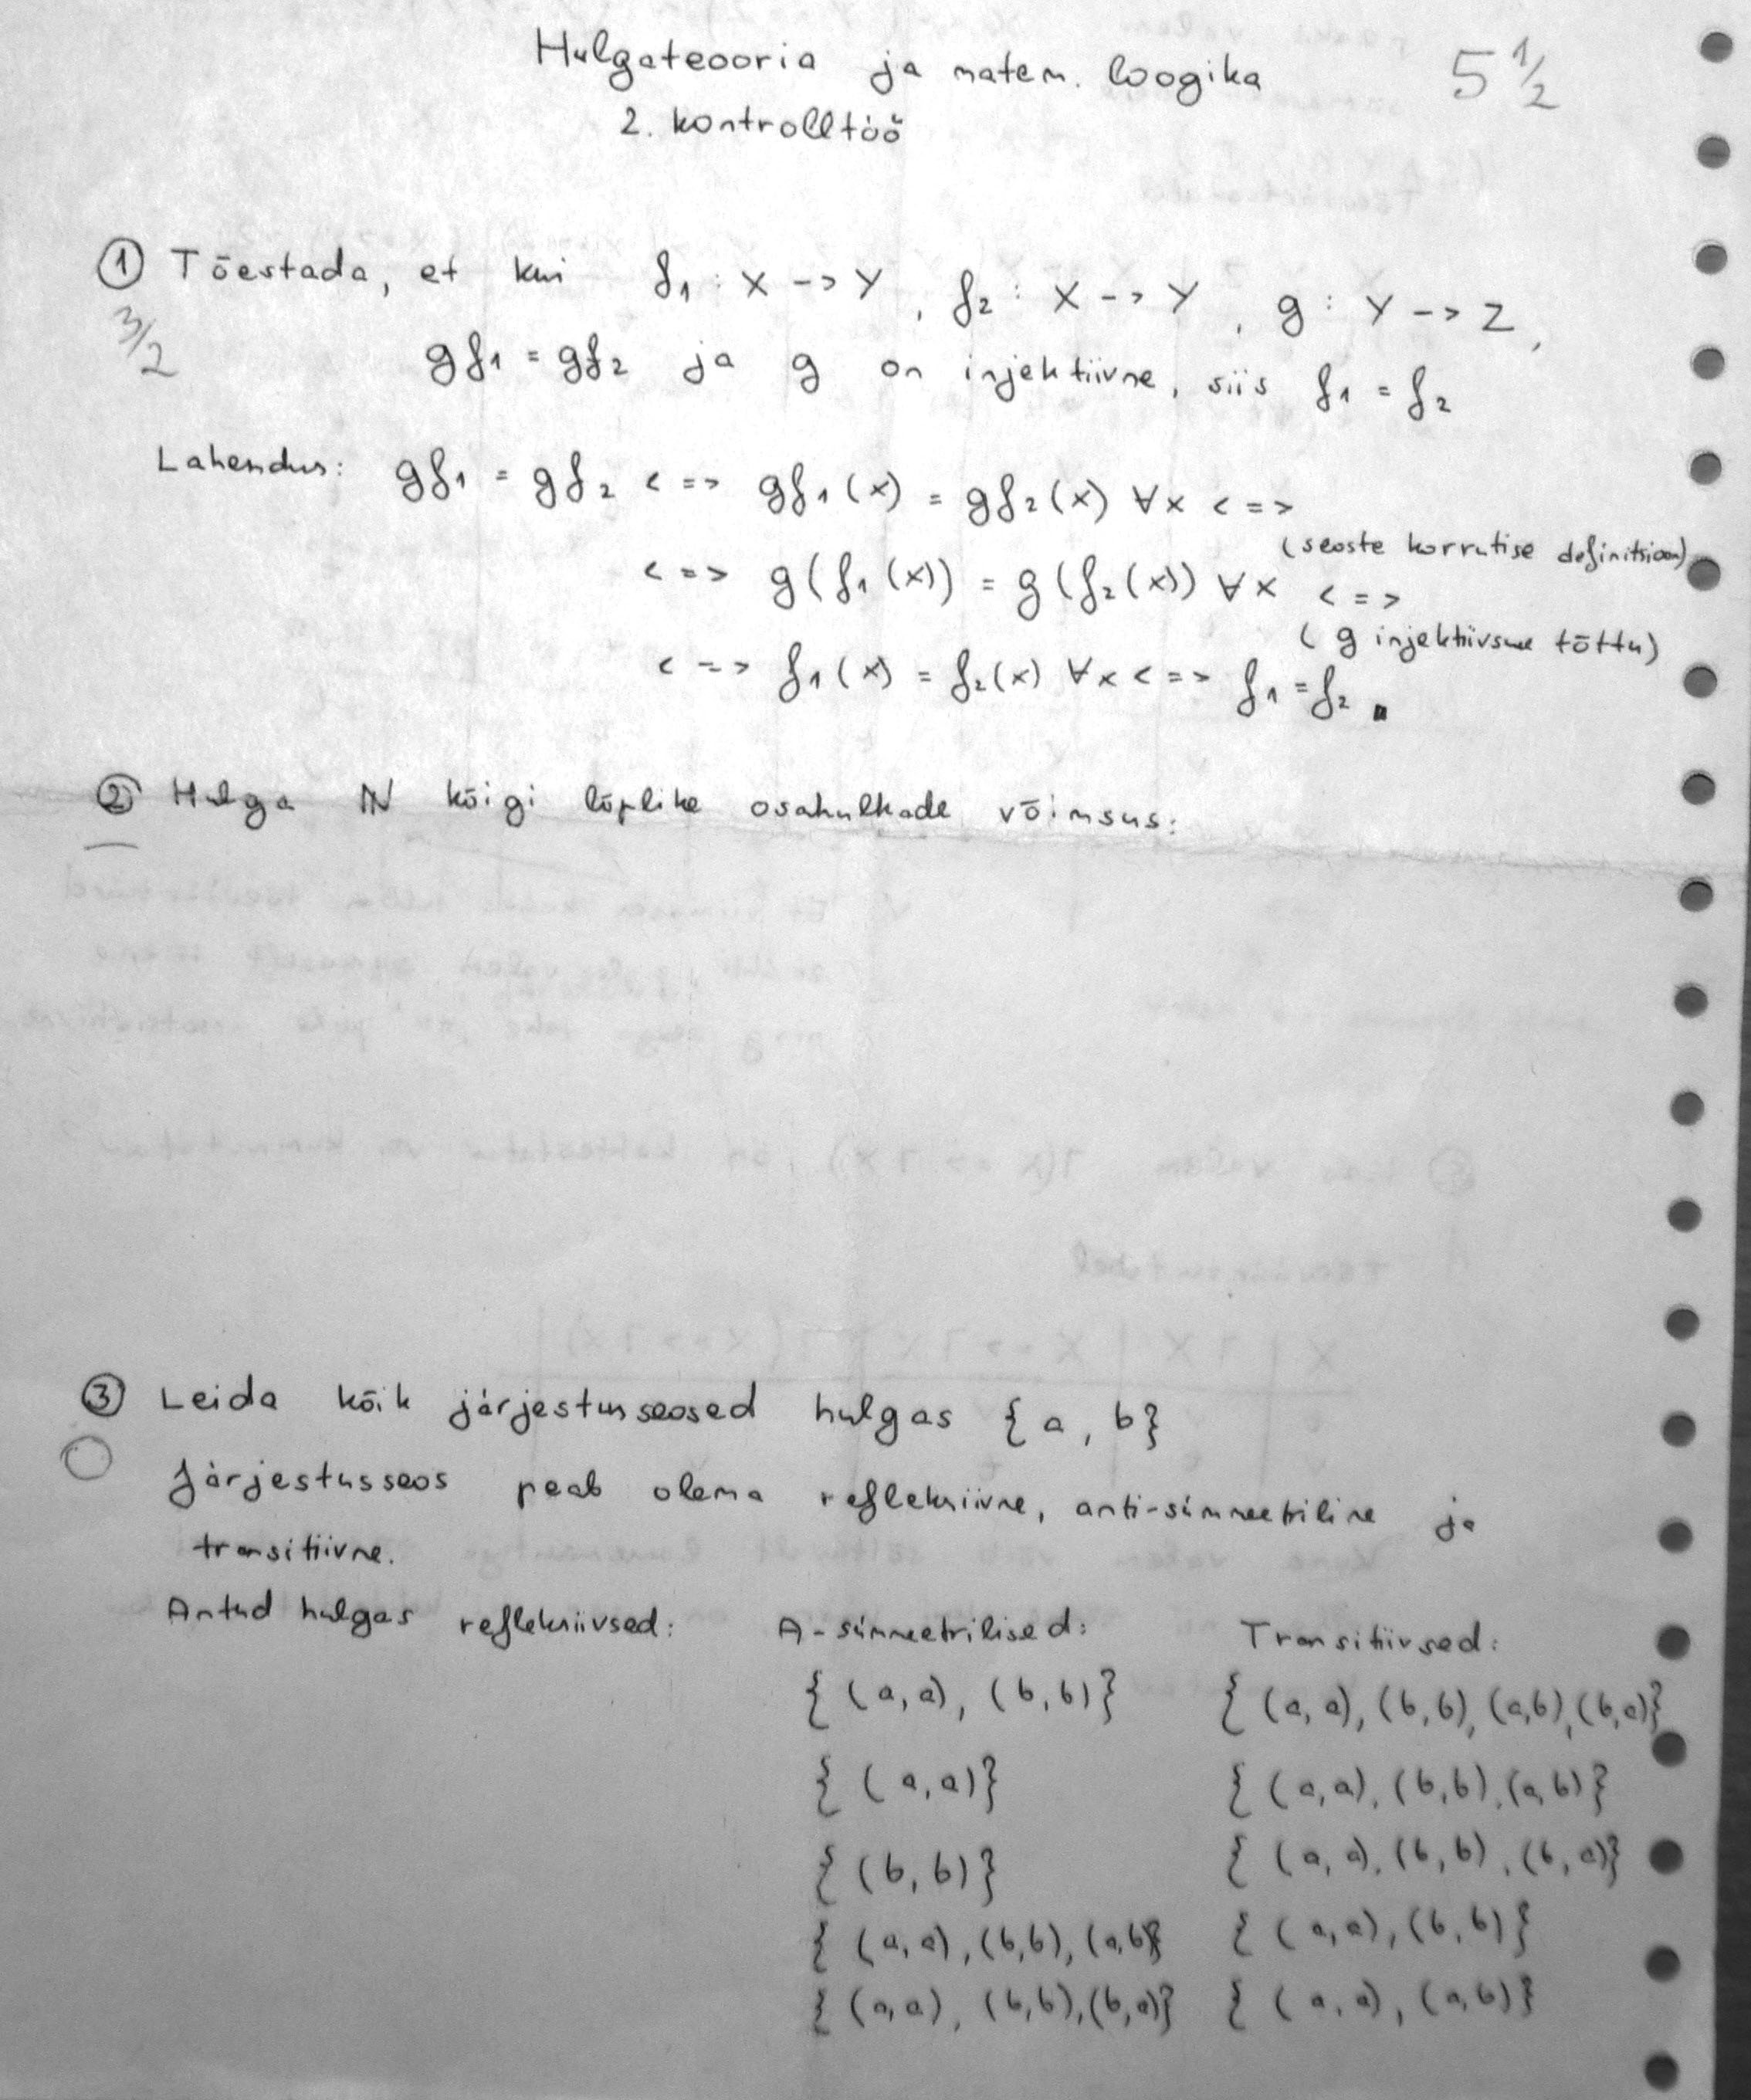 Hulgateooria ja matem. loogika
5 1/2
2. kontrolltöö
① Tõestada, et kui f₁ : X -> Y, f₂ : X -> Y, g : Y -> Z,
3/2
gf₁ = gf₂ ja g on injektiivne, siis f₁ = f₂
Lahendus: gf₁ = gf₂ <=> gf₁(x) = gf₂(x) ∀x <=>
(seoste korrutise definitsioon)
<=> g(f₁(x)) = g(f₂(x)) ∀x <=>
(g injektiivsuse tõttu)
<=> f₁(x) = f₂(x) ∀x <=> f₁ = f₂ ∎
② Hulga ℕ kõigi lõplike osahulkade võimsus:
—
③ Leida kõik järjestusseosed hulgas {a, b}
0
Järjestusseos peab olema refleksiivne, anti-sümmeetriline ja
transitiivne.
Antud hulgas refleksiivsed: A-sümmeetrilised: Transitiivsed:
{(a,a), (b,b)} {(a,a), (b,b), (a,b), (b,a)}
{(a,a)} {(a,a), (b,b), (a,b)}
{(b,b)} {(a,a), (b,b), (b,a)}
{(a,a), (b,b), (a,b)} {(a,a), (b,b)}
{(a,a), (b,b), (b,a)} {(a,a), (a,b)}